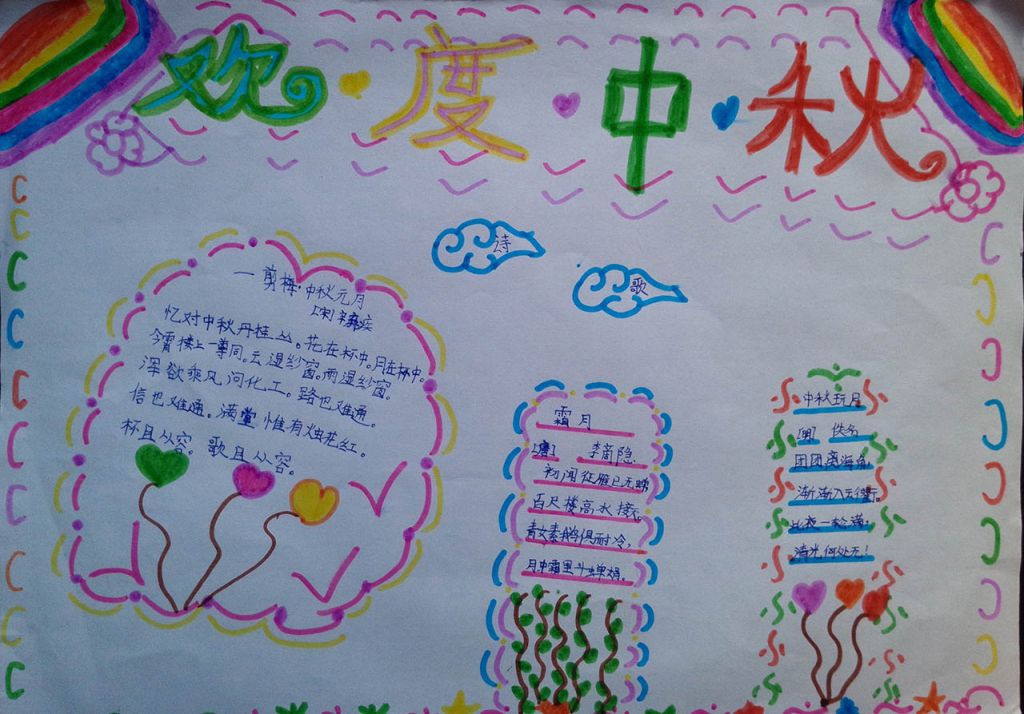 欢度中秋
诗
歌
一剪梅·中秋元月
[宋]辛弃疾
忆对中秋丹桂丛。花在杯中。月在杯中。
今宵楼上一尊同。云湿纱窗。雨湿纱窗。
浑欲乘风问化工。路也难通。
信也难通。满堂惟有烛花红。
杯且从容。歌且从容。
霜月
[唐] 李商隐
初闻征雁已无蝉
百尺楼高水接
青女素娥俱耐冷,
月中霜里斗婵娟。
中秋玩月
佚名
团团离海角
渐渐入云衢。
此夜一轮满,
清光何处无!